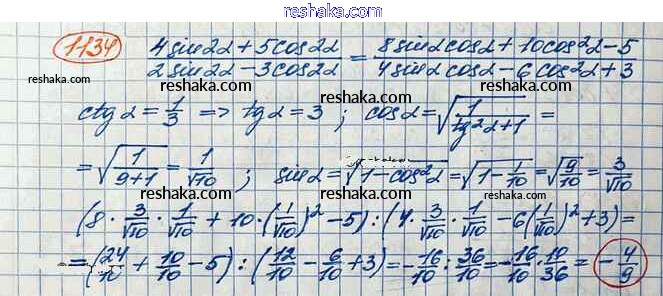 reshaka.com
1134 (4sin2α + 5cos2α)/(2sin2α - 3cos2α) = (8sinαcosα + 10cos²α - 5)/(4sinαcosα - 6cos²α + 3)
reshaka.com reshaka.com reshaka.com
ctgα = 1/3 => tgα = 3 ; cosα = √(1/(tg²α+1)) =
= √(1/(9+1)) = 1/√10 ; sinα = √(1-cos²α) = √(1-1/10) = √(9/10) = 3/√10
reshaka.com reshaka.com reshaka.com
(8 · 3/√10 · 1/√10 + 10 · (1/√10)² - 5) : (4 · 3/√10 · 1/√10 - 6(1/√10)² + 3) =
= (24/10 + 10/10 - 5) : (12/10 - 6/10 + 3) = -16/10 : 36/10 = -16/10 · 10/36 = -4/9
reshaka.com reshaka.com reshaka.com
reshaka.com